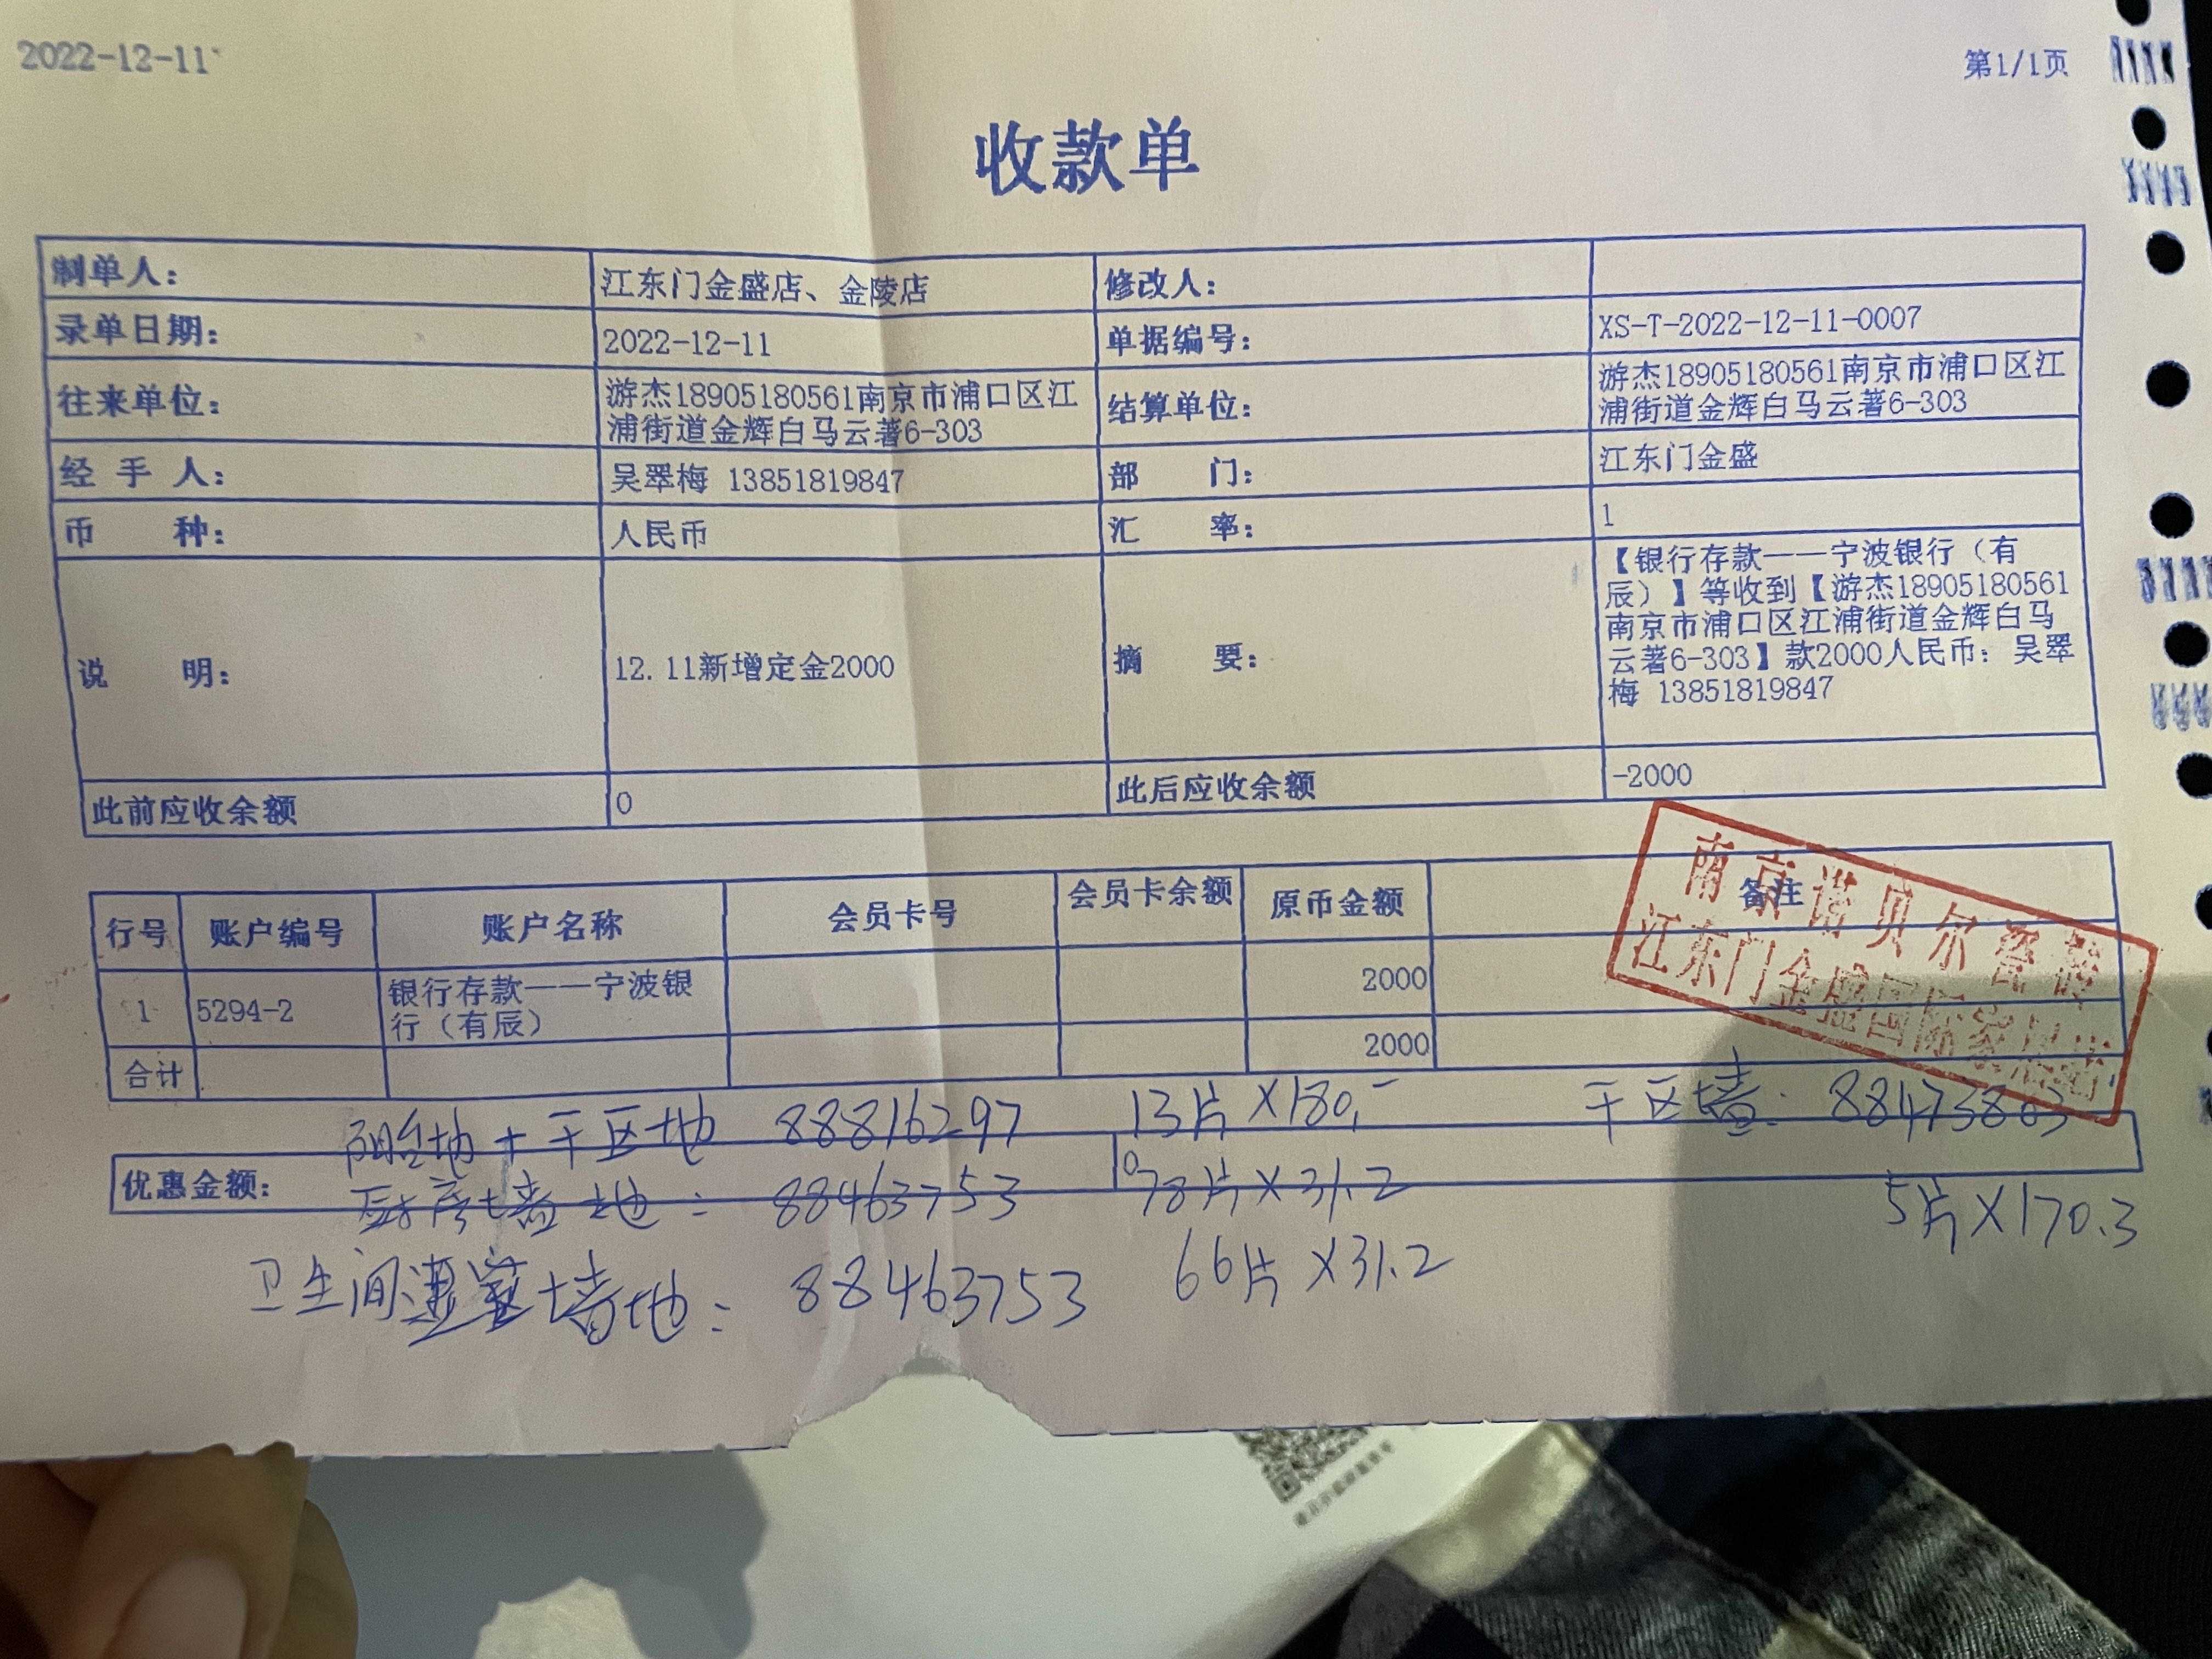 2022-12-11
第1/1页
收款单
制单人： 江东门金盛店、金陵店 修改人：
录单日期： 2022-12-11 单据编号： XS-T-2022-12-11-0007
往来单位： 游杰18905180561南京市浦口区江
浦街道金辉白马云著6-303
结算单位： 游杰18905180561南京市浦口区江
浦街道金辉白马云著6-303
经 手 人： 吴翠梅 13851819847 部 门： 江东门金盛
币 种： 人民币 汇 率： 1
说 明： 12.11新增定金2000 摘 要：
【银行存款——宁波银行（有
辰）】等收到【游杰18905180561
南京市浦口区江浦街道金辉白马
云著6-303】款2000人民币：吴翠
梅 13851819847
此前应收余额 0 此后应收余额 -2000
行号 账户编号 账户名称 会员卡号 会员卡余额 原币金额 备注
1 5294-2 银行存款——宁波银
行（有辰） 2000
合计 2000
南京诺贝尔瓷砖
江东门金盛国际家居店
阳台地+干区地 88816297 13片×180,- 干区墙： 88473803
优惠金额： 0
厨房墙地： 88463753 78片×31.2 5片×170.3
卫生间 墙地： 88463753 66片×31.2